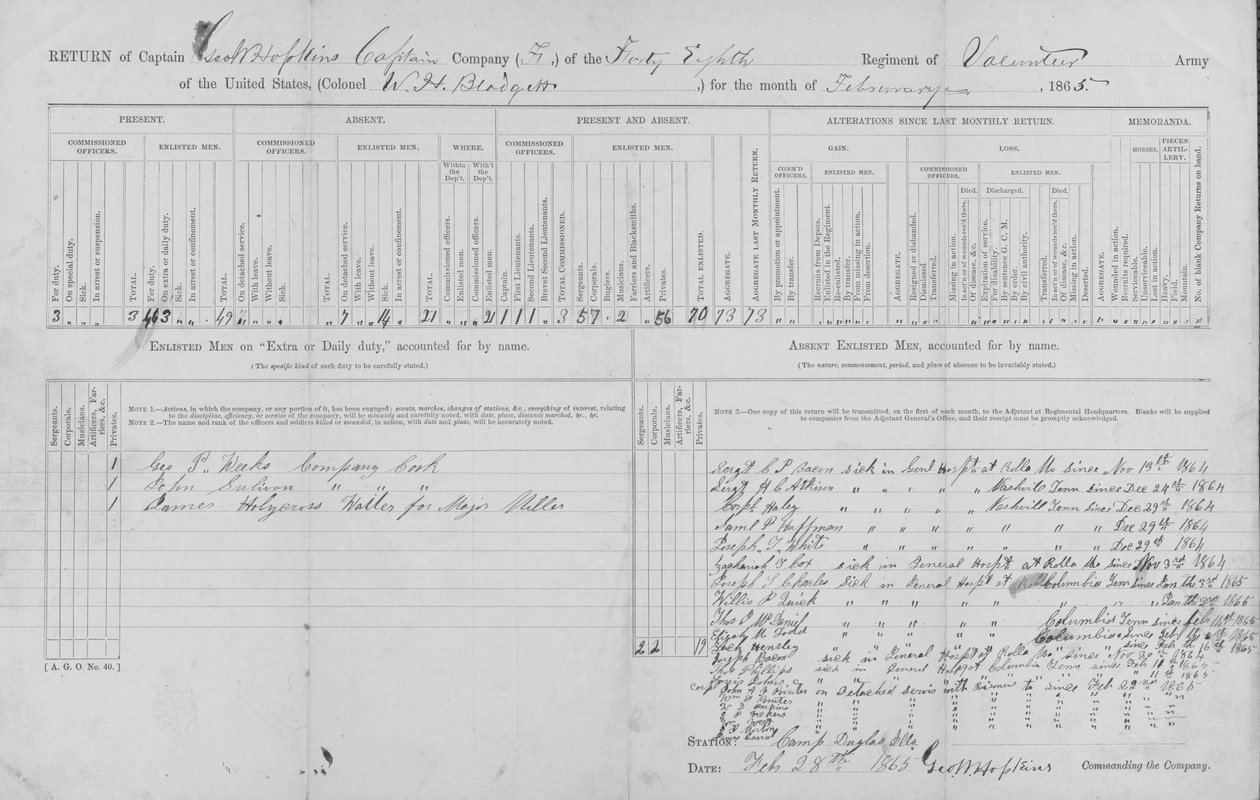 RETURN of Captain Geo W Hopkins Captain Company (F,) of the Forty Eighth Regiment of Volunteer Army
of the United States, (Colonel W. H. Blodgett ,) for the month of Februwary , 1865.
PRESENT. ABSENT. PRESENT AND ABSENT. ALTERATIONS SINCE LAST MONTHLY RETURN. MEMORANDA.
COMMISSIONED OFFICERS. ENLISTED MEN. COMMISSIONED OFFICERS. ENLISTED MEN. WHERE. COMMISSIONED OFFICERS. ENLISTED MEN. GAIN. LOSS. HORSES. PIECES ARTILLERY.
Within the Dep't. With't the Dep't. COMM'D OFFICERS. ENLISTED MEN. COMMISSIONED OFFICERS. ENLISTED MEN.
Died. Discharged. Died.
For duty. On special duty. Sick. In arrest or suspension. TOTAL. For duty. On extra or daily duty. Sick. In arrest or confinement. TOTAL. On detached service. With leave. Without leave. Sick. TOTAL. On detached service. With leave. Without leave. Sick. In arrest or confinement. TOTAL. Commissioned officers. Enlisted men. Commissioned officers. Enlisted men. Captain. First Lieutenants. Second Lieutenants. Brevet Second Lieutenants. TOTAL COMMISSIONED. Sergeants. Corporals. Buglers. Musicians. Farriers and Blacksmiths. Artificers. Privates. TOTAL ENLISTED. AGGREGATE. AGGREGATE LAST MONTHLY RETURN. By promotion or appointment. By transfer. Recruits from Depots. Enlisted in the Regiment. Re-enlisted. By transfer. From missing in action. From desertion. AGGREGATE. Resigned or disbanded. Transferred. Missing in action. In act'n or of wounds rec'd there. Of disease, &c. Expiration of service. For disability. By sentence G. C. M. By order. By civil authority. Transferred. In act'n or of wounds rec'd there. Of disease, &c. Missing in action. Deserted. AGGREGATE. Wounded in action. Recruits required. Serviceable. Unserviceable. Lost in action. Heavy. Field. Mountain. No. of blank Company Returns on hand.
3 " " " 3 46 3 " " 49 " " " " " 7 " " 14 " 21 " " " 21 1 1 1 " 3 5 7 " 2 " " 56 70 73 73
ENLISTED MEN on "Extra or Daily duty," accounted for by name.
(The specific kind of such duty to be carefully stated.)
Sergeants. Corporals. Musicians. Artificers, Farriers, &c. Privates.
NOTE 1.—Actions, in which the company, or any portion of it, has been engaged; scouts, marches, changes of stations, &c., everything of interest, relating
to the discipline, efficiency, or service of the company, will be minutely and carefully noted, with date, place, distance marched, &c., &c.
NOTE 2.—The name and rank of the officers and soldiers killed or wounded, in action, with date and place, will be accurately noted.
1 Geo P. Weeks Company Cook
1 John Sulivon " " "
1 James Holycross Waiter for Major Miller
[ A. G. O. No. 40. ]
ABSENT ENLISTED MEN, accounted for by name.
(The nature, commencement, period, and place of absence to be invariably stated.)
Sergeants. Corporals. Musicians. Artificers, Farriers, &c. Privates.
NOTE 3.—One copy of this return will be transmitted, on the first of each month, to the Adjutant at Regimental Headquarters. Blanks will be supplied
to companies from the Adjutant General's Office, and their receipt must be promptly acknowledged.
Sergt C P Bacon sick in Genl Hospt at Rolla Mo since Nov 13th 1864
Sergt H C Atkison " " " " Nashvill Tenn since Dec 24th 1864
Corpl Haley " " " " Nashvill Tenn since Dec 29th 1864
Saml P Huffman " " " " " " " Dec 29th 1864
Joseph T White " " " " " " " Dec 29th 1864
Zachariah T Cox sick in General Hospt at Rolla Mo since Nov 3rd 1864
Joseph S Charles Sick in General Hospt at Columbia Tenn since Jan th 3rd 1865
Willis P Quick " " " " " " " " Jan th 3rd 1865
Thos P McDaniel " " " " " Columbia Tenn since Feb 14th 1865
M Todd " " " " " Columbia " since Feb
Zach Hensley " " " " " " " since Feb th 16th 1865
2 2 19
Joseph Bacon sick in General Hospt at Rolla Mo since Nov 20th 1864
Thos Phillips sick in General Hospt at Columbia Tenn since Feb 11th 1865
Louis Johns " " " " " " " " 11th 1865
Corp John A J Pointer on Detached Servis with Prisoners to since Feb 22nd 1865
Wm Pointer " " " " " " " " "
STATION: Camp Duglas Ills
DATE: Feb 28th 1865 Geo W Hopkins Commanding the Company.